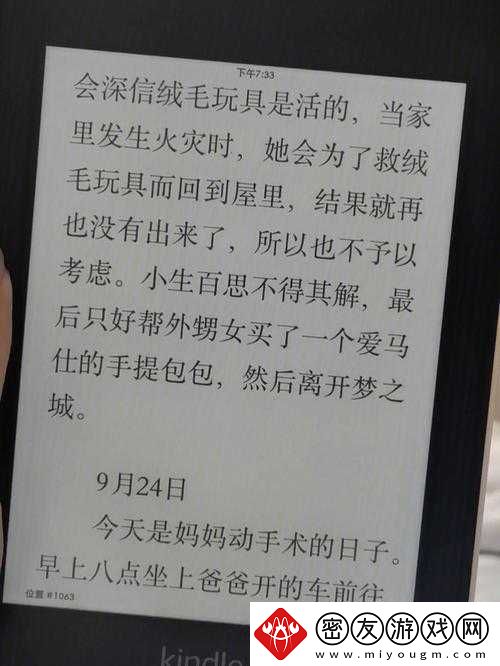 下午7:33
会深信绒毛玩具是活的，当家
里发生火灾时，她会为了救绒
毛玩具而回到屋里，结果就再
也没有出来了，所以也不予以
考虑。小生百思不得其解，最
后只好帮外甥女买了一个爱马
仕的手提包包，然后离开梦之
城。
9月24日
今天是妈妈动手术的日子。
早上八点坐上爸爸开的车前往
位置 #1063
kindle
密友游戏网
www.miyougm.com